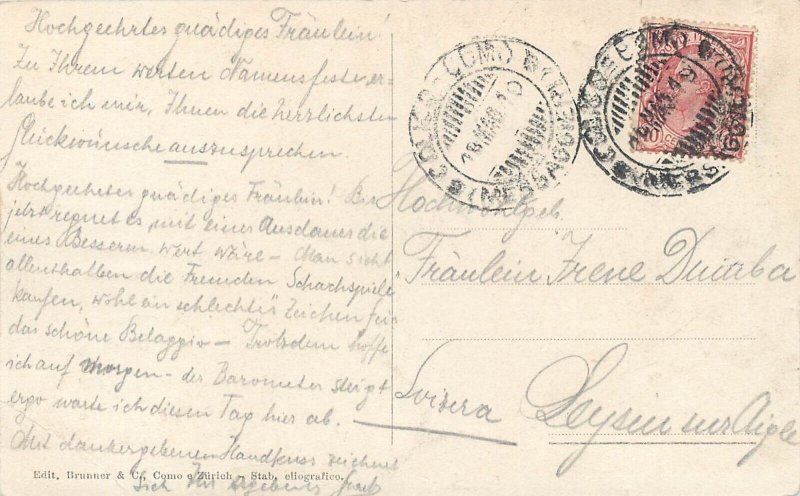 Hochgeehrtes gnädiges Fräulein!
Zu Ihrem werten Namensfeste er-
laube ich mir, Ihnen die herzlichsten
Glückwünsche auszusprechen.
Hochgeehrtes gnädiges Fräulein! Bis
jetzt regnet es, mit einer Ausdauer die
eines Besseren wert wäre – Man sieht
allenthalben die Fremden Schachspiele
kaufen, wohl ein schlechtes Zeichen für
das schöne Belaggio – Trotzdem hoffe
ich auf Morgen – der Barometer steigt
ergo warte ich diesen Tag hier ab.
Mit dankergebenem Handkuss zeichnet
sich Ihr ergebener
COMO
18 MAG 10
(MESSAGGERI
Hochwohlgeb.
Fräulein Irene
Svizera
Leysin sur Aigle
Edit. Brunner & C., Como e Zürich – Stab. eliografico.